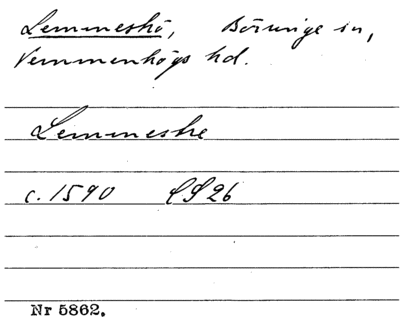 Lemmeskö, Börringe sn,
Vemmenhögs hd.
Lemmeske
c. 1590 LS 26
Nr 5862.